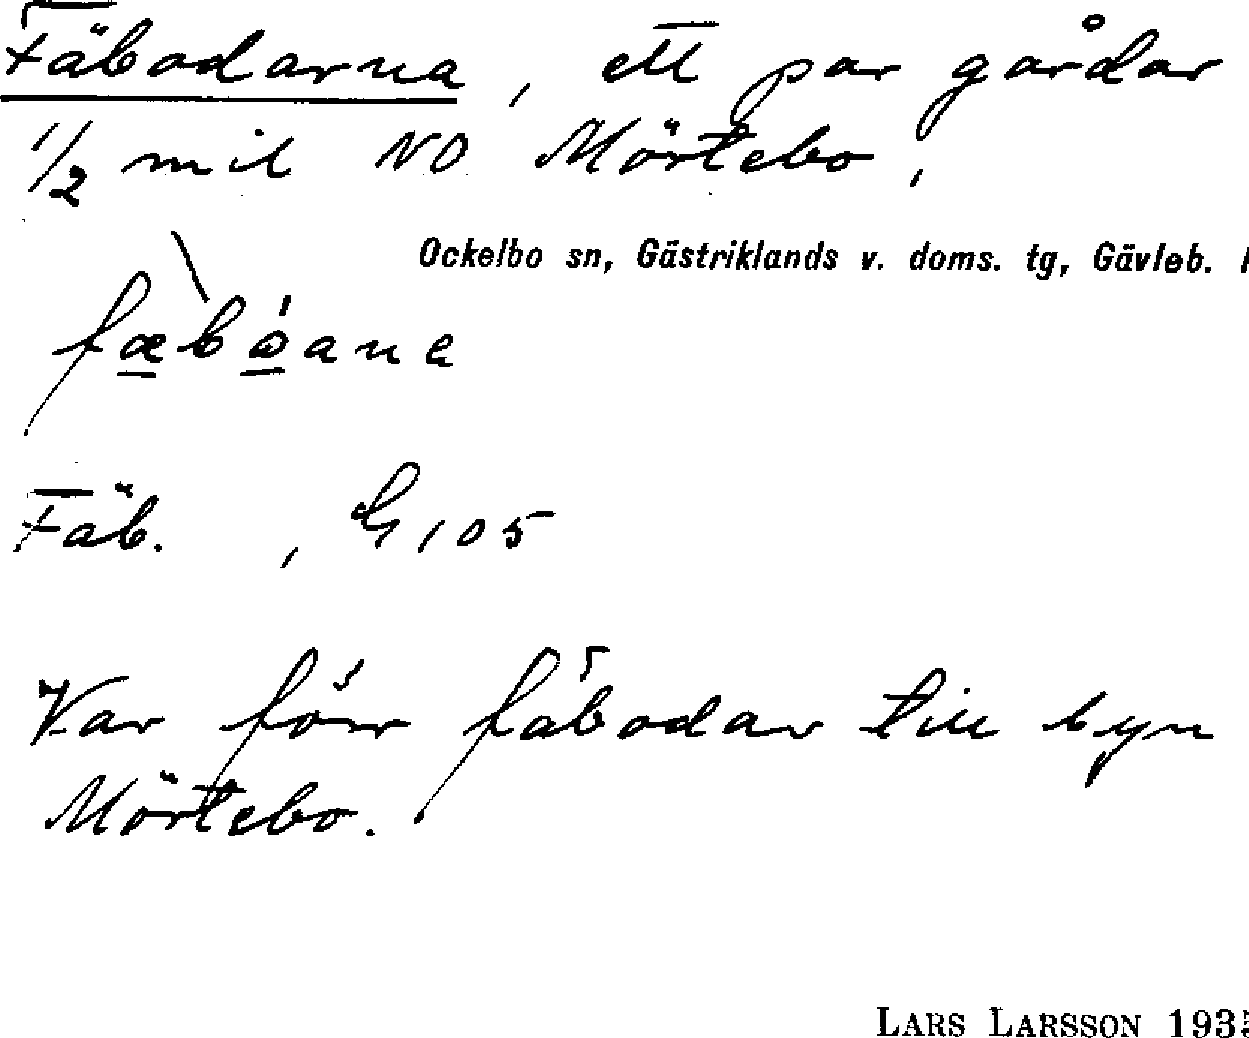 Fäbodarna, ett par gårdar
1/2 mil NO Mörtebo,
Ockelbo sn, Gästriklands v. doms. tg, Gävleb.
Fäb. , G 105
Var förr fäbodar till byn
Mörtebo.
LARS LARSSON 193